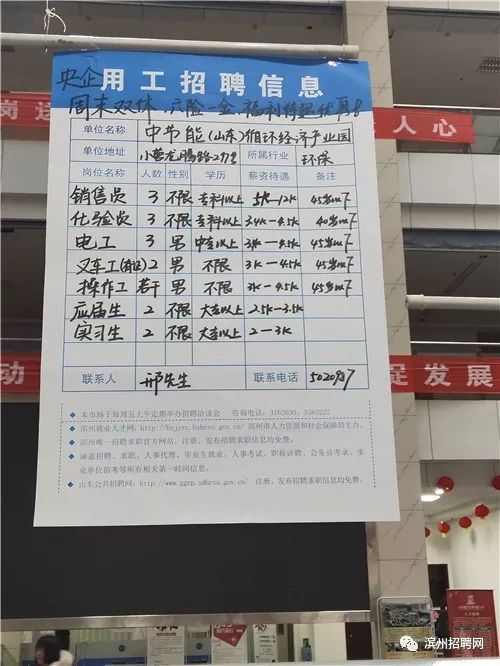 央企用工招聘信息
周末双休 六险一金 福利待遇优厚!
岗 人心
单位名称 中节能(山东)循环经济产业园
单位地址 小营龙腾路279号 所属行业 环保
岗位名称 人数 性别 学历 薪资待遇 备注
销售员 3 不限 专科以上 5K-12K 45岁以下
化验员 3 不限 专科以上 3.4K-4.5K 40岁以下
电工 3 男 中专以上 3.4K-4.5K 45岁以下
叉车工 2 男 不限 3K-4.5K 45岁以下
操作工 若干 男 不限 3K-4.5K 45岁以下
应届生 2 不限 大专以上 2.5K-3.5K
实习生 2 不限 大专以上 2-3K
动 促发展
联系人 邢先生 联系电话
本市场于每周五上午定期举办招聘洽谈会 咨询电话:3162630、3363222
滨州就业人才网:http://bzjyrc.bzhrss.gov.cn/ 滨州市人力资源和社会保障局主办。
滨州唯一招聘求职官方网站,注册、发布招聘求职信息均免费。
涵盖招聘、求职、人事代理、毕业生就业、人事考试、职称评聘、公务员考录、事
业单位招考等所有相关第一时间信息。
山东公共招聘网:http://www.ggzp.sdhrss.gov.cn/ 注册、发布招聘求职信息均免费。
滨州招聘网